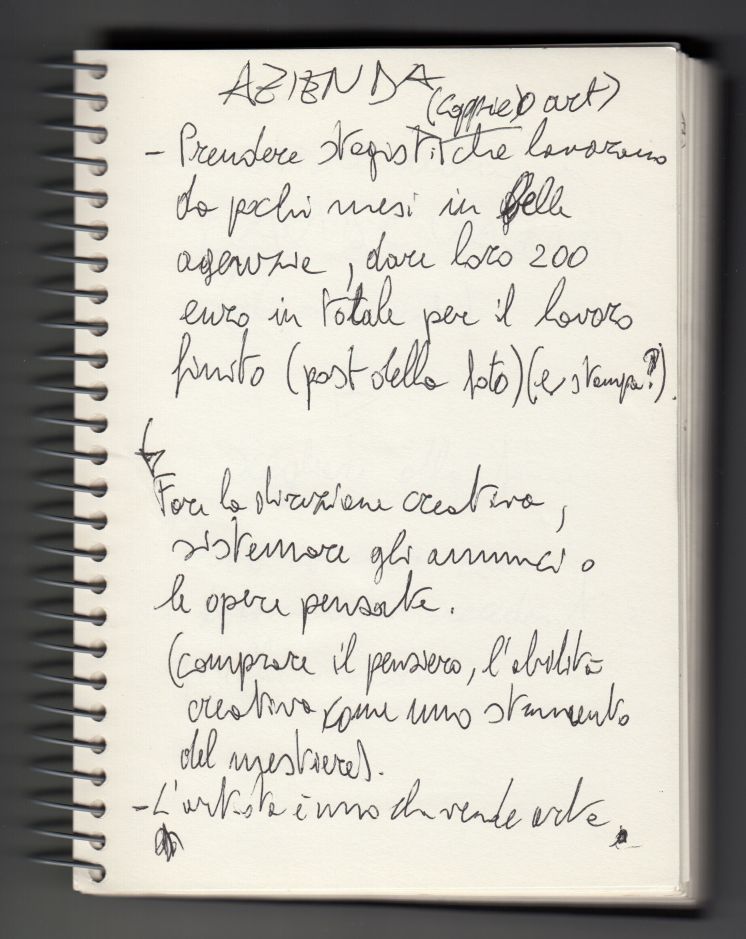 AZIENDA
(coppie o art)
- Prendere stagisti che lavorano
da pochi mesi in belle
agenzie, dare loro 200
euro in totale per il lavoro
finito (post della foto) (e stampa?).
Fare la direzione creativa,
sistemare gli annunci o
le opere pensate.
(comprare il pensiero, l'abilità
creativa come uno strumento
del mestiere).
- L'artista è uno che vende arte.